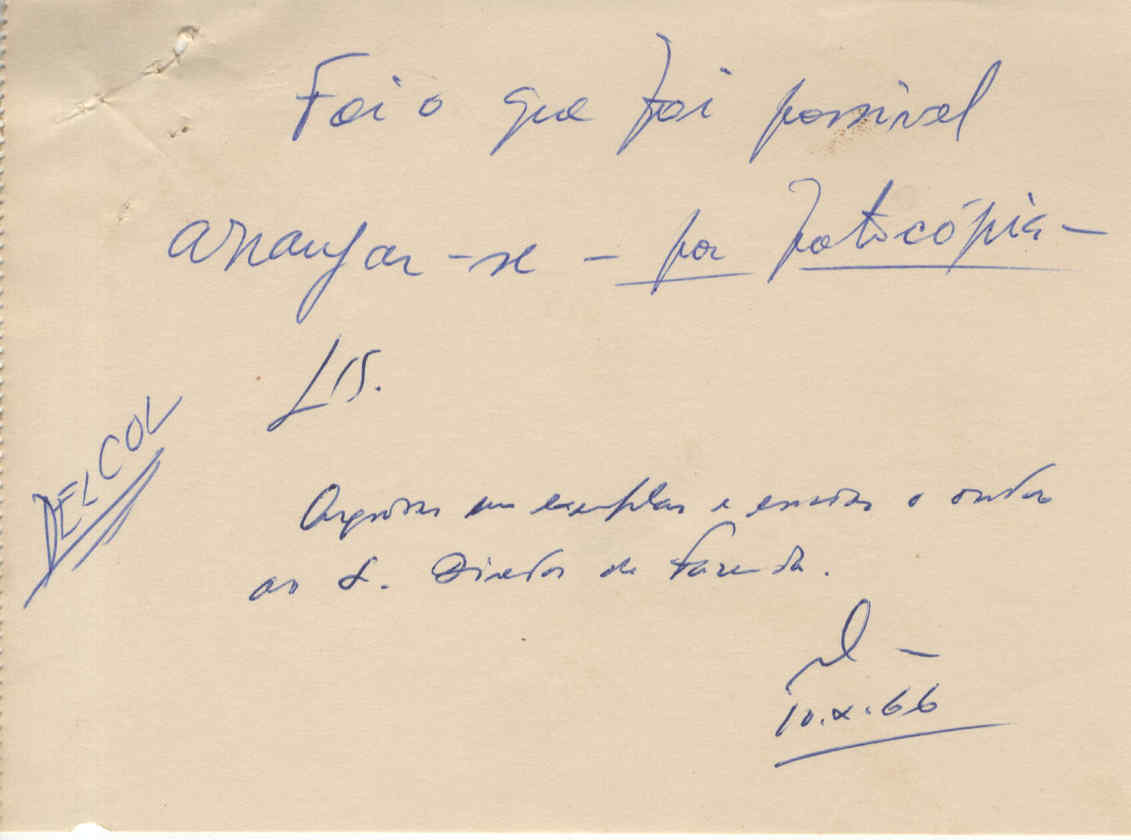 Foi o que foi possivel
arranjar-se – por fotocópia –
DELCOL
Arquivar um exemplar e enviar o outro
ao S. Director de Fazenda.
10.X.66